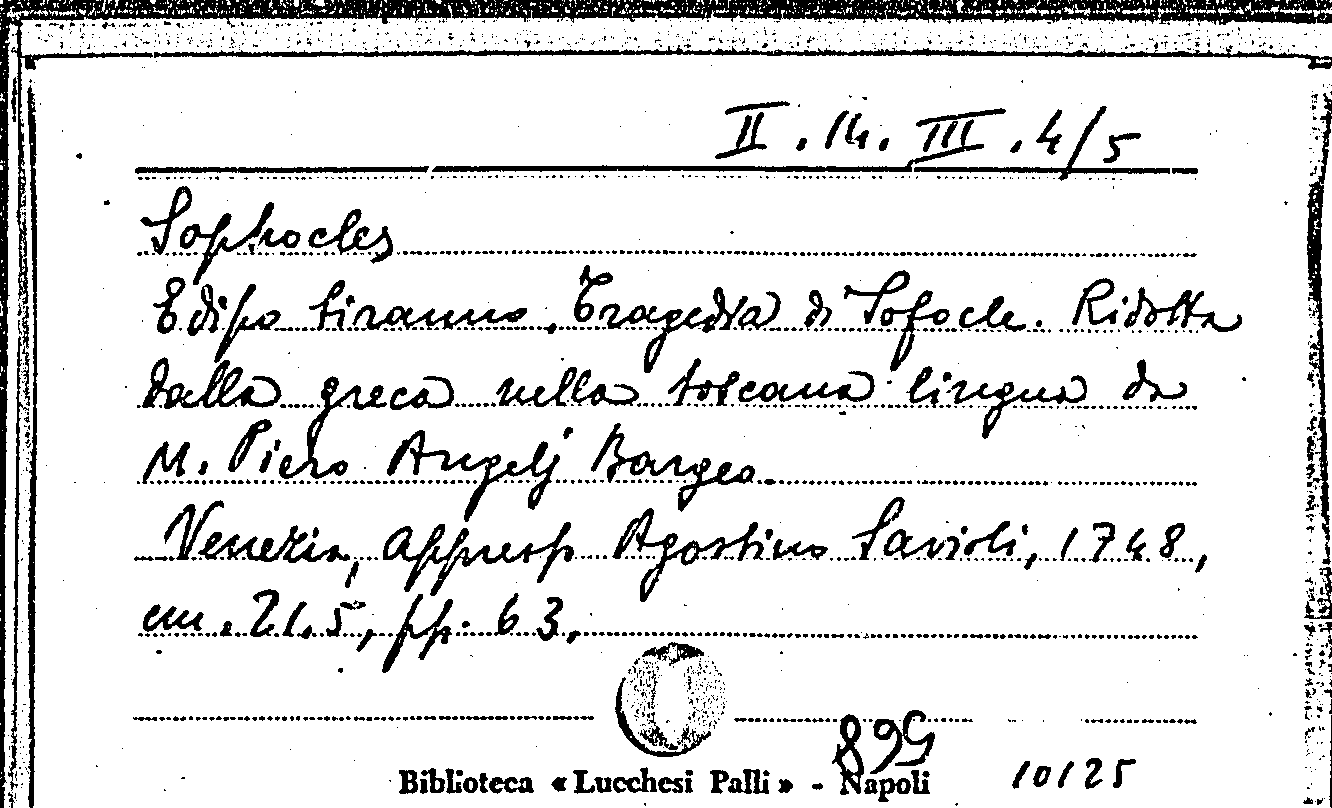 II.14.III.4/5
Sophocles
Edipo tiranno. Tragedia di Sofocle. Ridotta
dalla greca nella toscana lingua da
M. Piero Angelj Bargeo.
Venezia, appresso Agostino Savioli, 1748,
cm. 21.5, pp. 63.
Biblioteca « Lucchesi Palli » - Napoli
10125